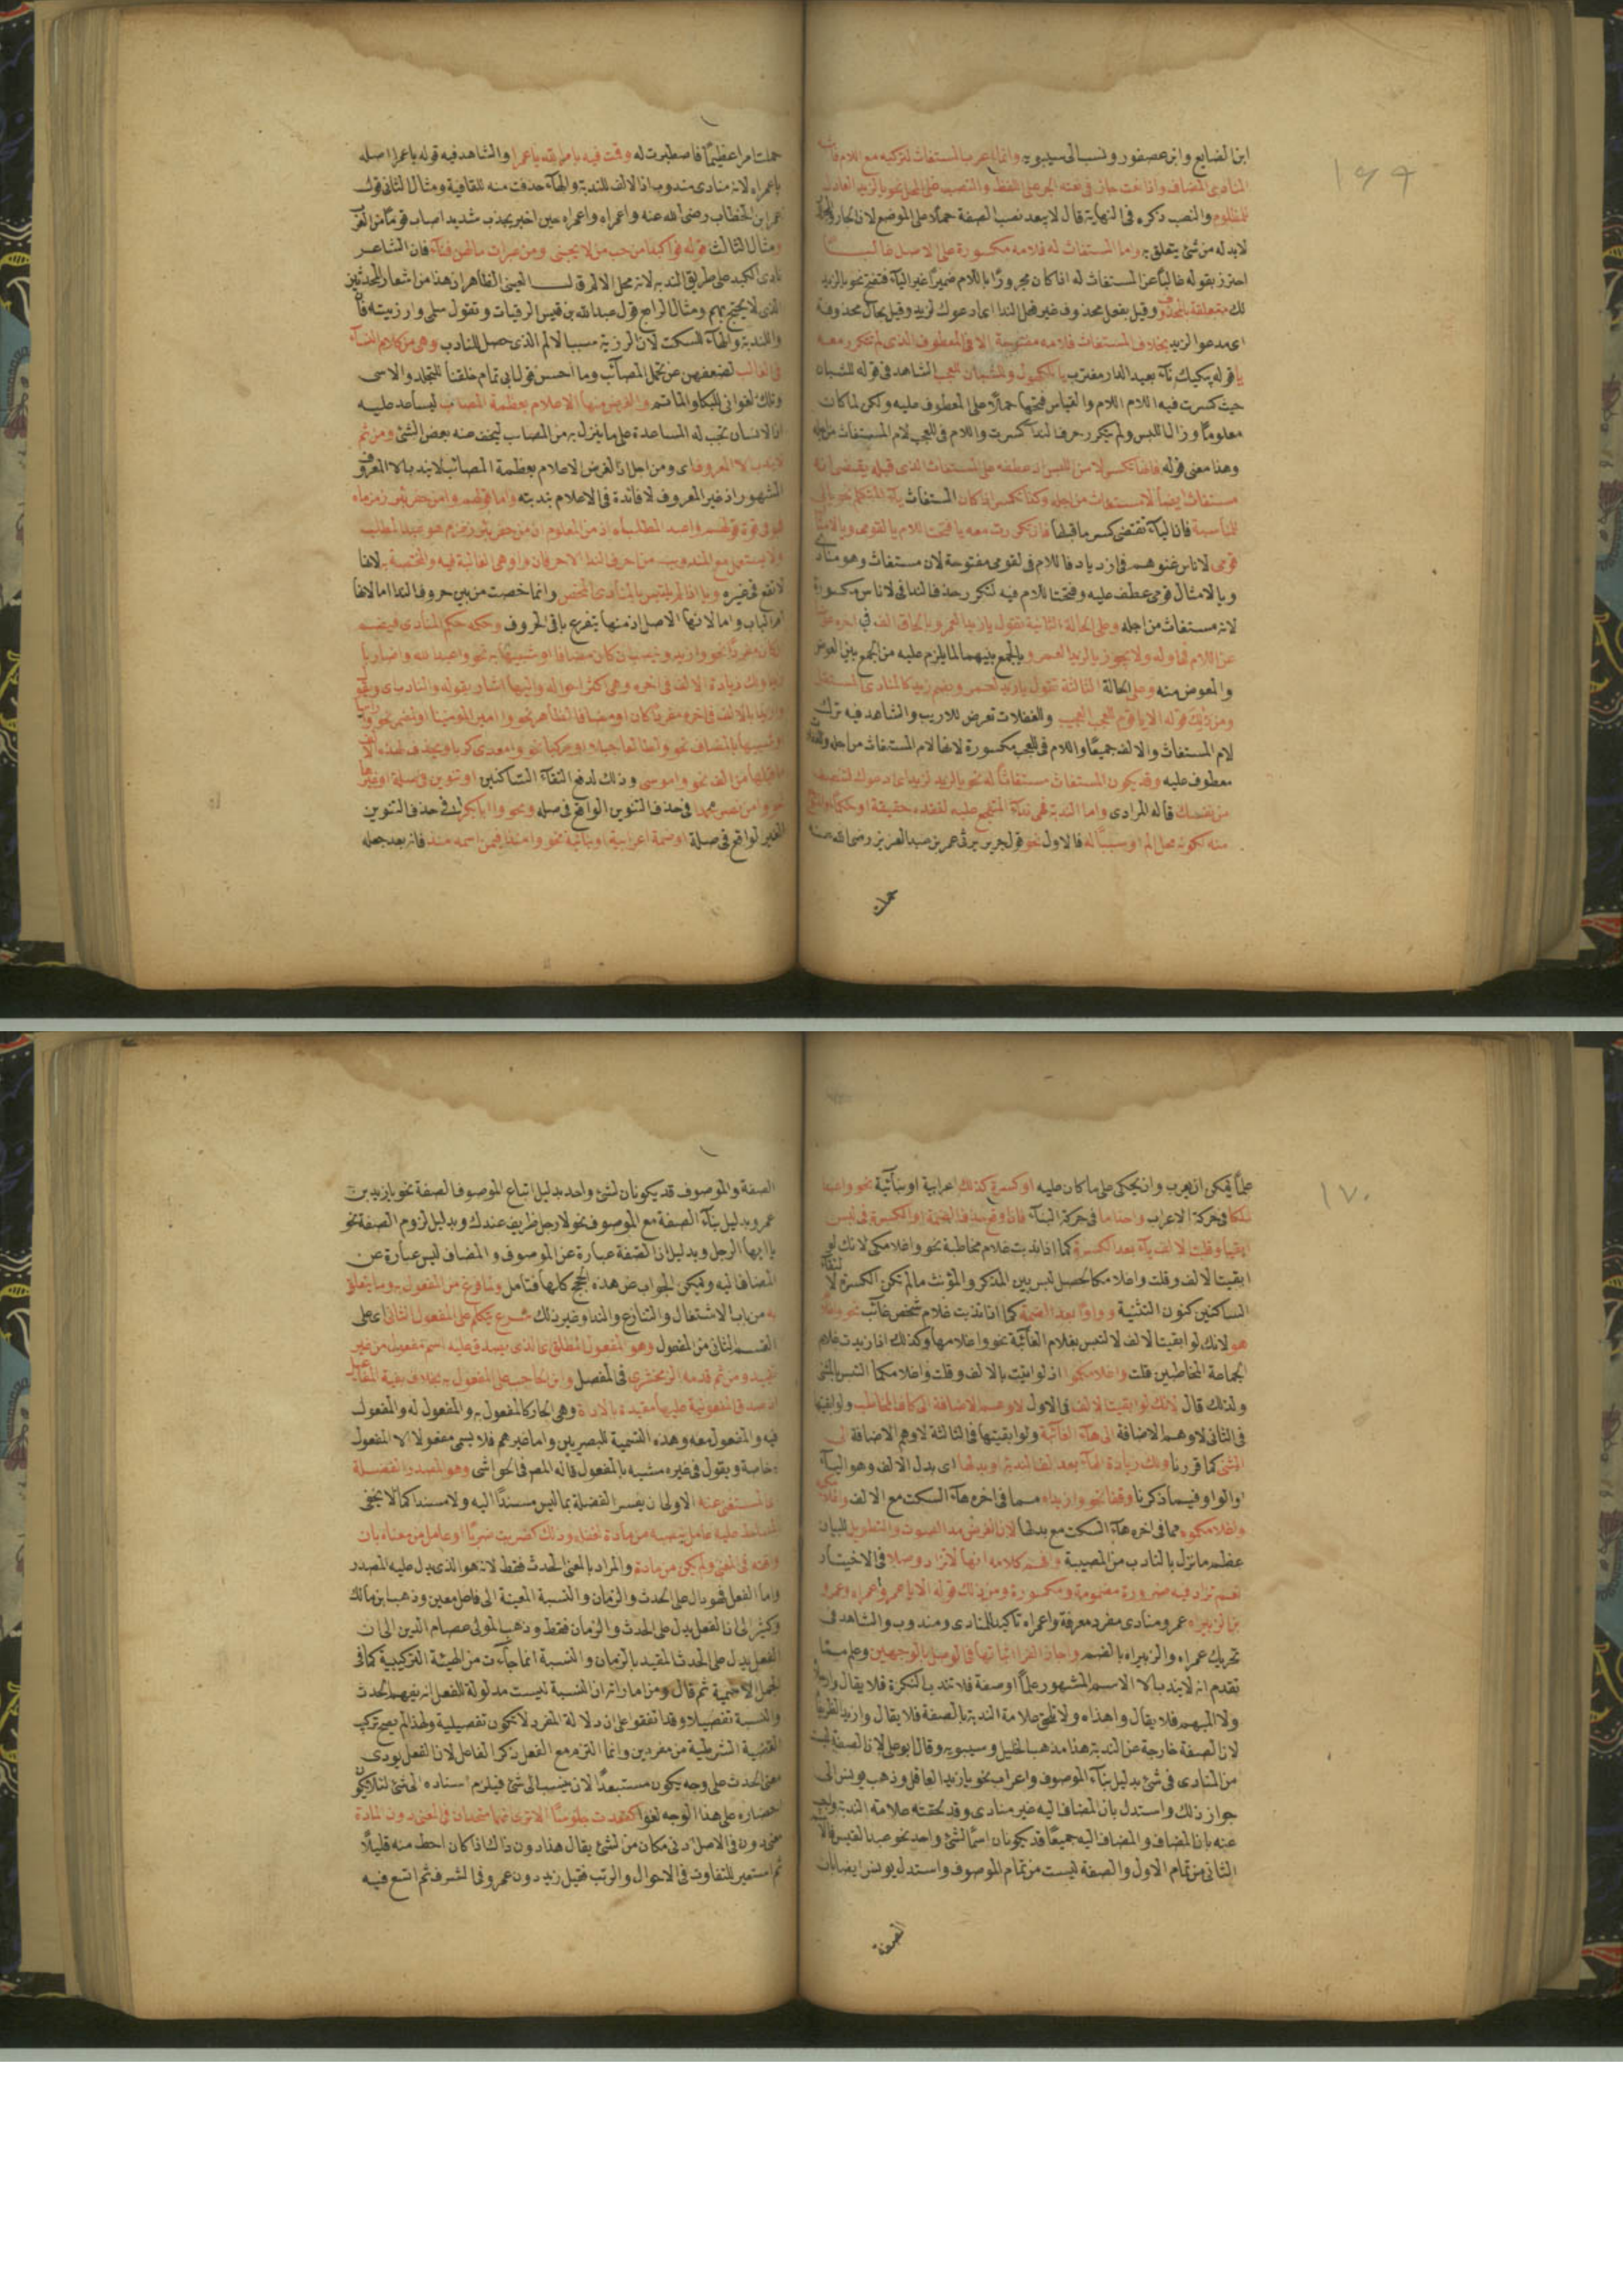 ١٦٩
ابن الضايع وابن عصفور ونسب الى سيبويه وانما اعرب المستغاث لتركيبه مع اللام
المنادى المضاف واذا نعت جاز في نعته الجر على اللفظ والنصب على المحل نحو يا لزيد العادل
للمظلوم والنصب ذكره في النهاية قال لا يبعد نصب الصفة حملا على الموضع لان الجار
لابد له من شئ يتعلق به واما المستغاث له فلامه مكسورة على الاصل غالبا
احترز بقوله غالبا عن المستغاث له اذا كان مجرورا باللام ضميرا غير الياء فتفتح نحو يا لزيد
لك متعلقة بمحذوف وقيل بفعل محذوف غير فعل الندا اي ادعوك لزيد وقيل بحال محذوفة
اى مدعوا لزيد بخلاف المستغاث فلامه مفتوحة الا في المعطوف الذى لم تتكرر معه
يا قوله يبكيك ناء بعيد الدار مغترب يا للكهول وللشبان للعجب الشاهد في قوله للشبان
حيث كسرت فيه اللام والقياس فتحها حملا على المعطوف عليه ولكن لما كان
معلوما وزال اللبس ولم يتكرر حرف الندا كسرت واللام في للعجب لام المستغاث من اجله
وهذا معنى قوله فانما تكسر لامن اللبس اذ عطفه على المستغاث الذى قبله يقتضى انه
مستغاث ايضا لا مستغاث من اجله وكذا تكسر اذا كان المستغاث ياء المتكلم نحو يا لى
للمناسبة فان الياء تقتضى كسر ما قبلها فان تكررت معه يا فتحت اللام يا لقومى ويا لامثال
قومى لاناس عتوهم في ازدياد فاللام في لقومى مفتوحة لان مستغاث وهو منادى
ويا لامثال قومى عطف عليه وفتحت اللام فيه لتكرر حرف الندا في لاناس مكسورة
لانه مستغاث من اجله وعلى الحالة الثانية تقول يا زيدا لعمرو بالحاق الف في اخره عوضا
عن اللام في اوله ولا يجوز يا لزيدا لعمرو بالجمع بينهما لما يلزم عليه من الجمع بين العوض
والمعوض منه وعلى الحالة الثالثة تقول يا زيد لعمرو بضم زيد كالمنادى المستقل
ومن ذلك قوله الا يا قوم للعجب العجيب وللغفلات تعرض للاريب والشاهد فيه ترك
لام المستغاث والالف جميعا واللام في للعجب مكسورة لانها لام المستغاث من اجله
معطوف عليه وقد يكون المستغاث مستغاثا له نحو يا لزيد لزيد اى ادعوك لتنصف
من نفسك قاله المرادى واما الندبة فهى نداء المتفجع عليه لفقده حقيقة او حكما
منه لكونه محل الم او سببا له فالاول نحو قول جرير يرثى عمر بن عبد العزيز رضى الله عنه
حملت
حملت امرا عظيما فاصطبرت له وقمت فيه بامر الله يا عمرا والشاهد فيه قوله يا عمرا اصله
يا عمراه لانه منادى مندوب اذ الالف للندبة والهاء حذفت منه للقافية ومثال الثانى قول
عمر ابن الخطاب رضى الله عنه واعمراه واعمراه حين اخبر بجدب شديد اصاب قوما من العرب
ومثال الثالث قوله فواكبدا من حب من لا يحبنى ومن عبرات ما لهن فناء فان الشاعر
نادى الكبد على طريق الندبة لانه محل الالم قال العينى الظاهر ان هذا من اشعار المحدثين
الذى لا يحتج بهم ومثال الرابع قول عبد الله بن قيس الرقيات وتقول سلمى وارزيتيه
واللندبة والهاء للسكت لان الرزية سبب الالم الذى حصل للنادب وهى من كلام النساء
في الغالب لضعفهن عن تحمل المصائب وما احسن قول ابى تمام خلقنا للتجلد والاسى
وتلك الغوانى للبكا والماتم والغرض منها الاعلام بعظمة المصاب ليساعد عليه
اذ الانسان تجب له المساعدة على ما ينزل به من المصاب ليخف عنه بعض الشئ ومن ثم
لا يندب الا المعروف اى ومن اجل ان الغرض الاعلام بعظمة المصائب لا يندب الا المعروف
المشهور اذ غير المعروف لا فائدة في الاعلام بندبته واما قولهم وا من حفر بئر زمزماه
فهو في قوة قولهم واعبد المطلباه اذ من المعلوم ان من حفر بئر زمزم هو عبد المطلب
ولا يستعمل مع المندوب من احرف الندا الا حرفان وا وهى الغالبة فيه والمختصة به لانها
لا تقع في غيره ويا اذا لم يلتبس بالمنادى المحض وانما خصت من بين حروف الندا اما لانها
ام الباب واما لانها الاصل اذ منها يتفرع باقى الحروف وحكمه حكم المنادى فيضم
ان كان مفردا نحو وازيد وينصب ان كان مضافا او شبيها به نحو واعبد الله واضاربا
زيدا ولك زيادة الالف في اخره وهى اكثر احواله واليها اشار بقوله والنادب اى
وازيدا بالالف في اخره مفردا كان او مضافا لظاهر نحو وا امير المؤمنينا او لضمير نحو
او شبيها بالمضاف نحو واطالعا جبلا او مركبا نحو وامعدى كربا ويحذف لهذه الالف
ما قبلها من الف نحو واموسى وذلك لدفع التقاء الساكنين او تنوين في صلة او غيرها
نحو وا من نصر محمدا في حذف التنوين الواقع في صلة ونحو وا ابا بكر في حذف التنوين
الغير الواقع في صلة او ضمة اعرابية او بنائية نحو وا منذا فيمن اسمه منذ فانه بعد جعله
١٧٠
علما يمكن ان يعرب وان يحكى على ما كان عليه او كسرة كذلك اعرابية او بنائية نحو واعبد
الملكا في حركة الاعراب واحذاما في حركة البناء فان اوقع حذف الضمة او الكسرة في لبس
ابقيا وقلبت الالف ياء بعد الكسرة كما اذا ندبت غلام مخاطبة نحو واغلامكى لانك لو
ابقيت الالف وقلت واغلامكا لحصل لبس بين المذكر والمؤنث ما لم تكن الكسرة لالتقاء
الساكنين كنون التثنية وواوا بعد الضمة كما اذا ندبت غلام شخص غائب نحو واغلا
مهو لانك لو ابقيت الالف لالتبس بغلام الغائبة نحو واغلامها وكذلك اذا ندبت غلام
الجماعة المخاطبين قلت واغلامكموا اذ لو اتيت بالالف وقلت واغلامكما التبس بالمثنى
ولذلك قال لانك لو ابقيت الالف في الاول لاوهم الاضافة الى كاف المخاطب ولو ابقيتها
في الثانى لاوهم الاضافة الى هاء الغائبة ولو ابقيتها في الثالثة لاوهم الاضافة الى
المثنى كما قررنا ولك زيادة الهاء بعد الف الندبة او بدلها اى بدل الالف وهو الياء
او الواو فيما ذكرنا وقفا نحو وازيداه مما في اخره هاء السكت مع الالف واغلامكيه
واغلامكموه مما في اخره هاء السكت مع بدلها لان الغرض مد الصوت والتطويل للبيان
عظم ما نزل بالنادب من المصيبة وافهم كلامه انها لا تزاد وصلا في الاختيار
نعم تزاد فيه ضرورة مضمومة ومكسورة ومن ذلك قوله الا يا عمرو اعمراه وعمرو
بن الزبيراه عمرو منادى مفرد معرفة واعمراه تاكيد للمنادى ومندوب والشاهد في
تحريك عمراه والزبيراه بالضم واجاز الفرا اثباتها في الوصل بالوجهين وعلم مما
تقدم انه لا يندب الا الاسم المشهور علما او صفة فلا تندب النكرة فلا يقال وارجلاه
ولا المبهم فلا يقال واهذاه ولا تلحق علامة الندبة بالصفة فلا يقال وازيد الظريفاه
لان الصفة خارجة عن الندبة هذا مذهب الخليل وسيبويه وقال ابو على لان الصفة ليست
من المنادى في شئ بدليل بناء الموصوف واعراب نحو يا زيد العاقل وذهب يونس الى
جواز ذلك واستدل بان المضاف اليه غير منادى وقد لحقته علامة الندبة واجيب
عنه بان المضاف والمضاف اليه جميعا قد يكونان اسما لشئ واحد نحو عبد القيس
الثانى من تمام الاول والصفة ليست من تمام الموصوف واستدل يونس ايضا بان
الصفة
الصفة والموصوف قد يكونان لشئ واحد بدليل اتباع الموصوف الصفة نحو يا زيد بن
عمرو وبدليل بناء الصفة مع الموصوف نحو لا رجل ظريف عندك وبدليل لزوم الصفة نحو
يا ايها الرجل وبدليل ان الصفة عبارة عن الموصوف والمضاف ليس عبارة عن
المضاف اليه ويمكن الجواب عن هذه الحجج كلها فتامل ولما فرغ من المفعول به وما يتعلق
به من باب الاشتغال والتنازع والندا وغير ذلك شرع يتكلم على المفعول الثانى اى على
القسم الثانى من المفعول وهو المفعول المطلق اى الذى يصدق عليه اسم مفعول من غير
تقييد ومن ثم قدمه الزمخشرى في المفصل وابن الحاجب على المفعول به بخلاف بقية المفاعيل
اذ صدق المفعولية عليها مقيدة بالاداة وهى الجار كالمفعول به والمفعول له والمفعول
فيه والمفعول معه وهذه التسمية للبصريين واما غيرهم فلا يسمى مفعولا الا المفعول
به خاصة ويقول في غيره مشبه بالمفعول قاله المص في الحواشى وهو المصدر الفضلة
المستغنى عنه الاولى ان يفسر الفضلة بما ليس مسندا اليه ولا مسندا كما لا يخفى
المسلط عليه عامل ينصبه من مادة لفظه وذلك كضربت ضربا او عامل من معناه بان
وافقه في المعنى ولم يكن من مادته والمراد بالمعنى الحدث فقط لانه هو الذى يدل عليه المصدر
واما الفعل فهو دال على الحدث والزمان والنسبة المعينة الى فاعل معين وذهب ابن مالك
وكثير الى ان الفعل يدل على الحدث والزمان فقط وذهب المولى عصام الدين الى ان
الفعل يدل على الحدث المقيد بالزمان والنسبة انما جاءت من الهيئة التركيبية كما في
الجمل الاسمية ثم قال ومن امارات ان النسبة ليست مدلولة للفعل انه يفهم الحدث
والنسبة تفصيلا وقد اتفقوا على ان دلالة المفرد لا تكون تفصيلية ولهذا لم يصح تركب
القضية الشرطية من مفردين وانما التزم مع الفعل ذكر الفاعل لان الفعل يؤدى
معنى الحدث على وجه يكون مستبعدا لان ينسب الى شئ فيلزم اسناده الى شئ لئلا يكون
احضاره على هذا الوجه لغوا كقعدت جلوسا الا ترى انهما متحدان في المعنى دون المادة
معنى دون في الاصل ادنى مكان من الشئ يقال هذا دون ذاك اذا كان احط منه قليلا
ثم استعير للتفاوت في الاحوال والرتب فقيل زيد دون عمرو في الشرف ثم اتسع فيه